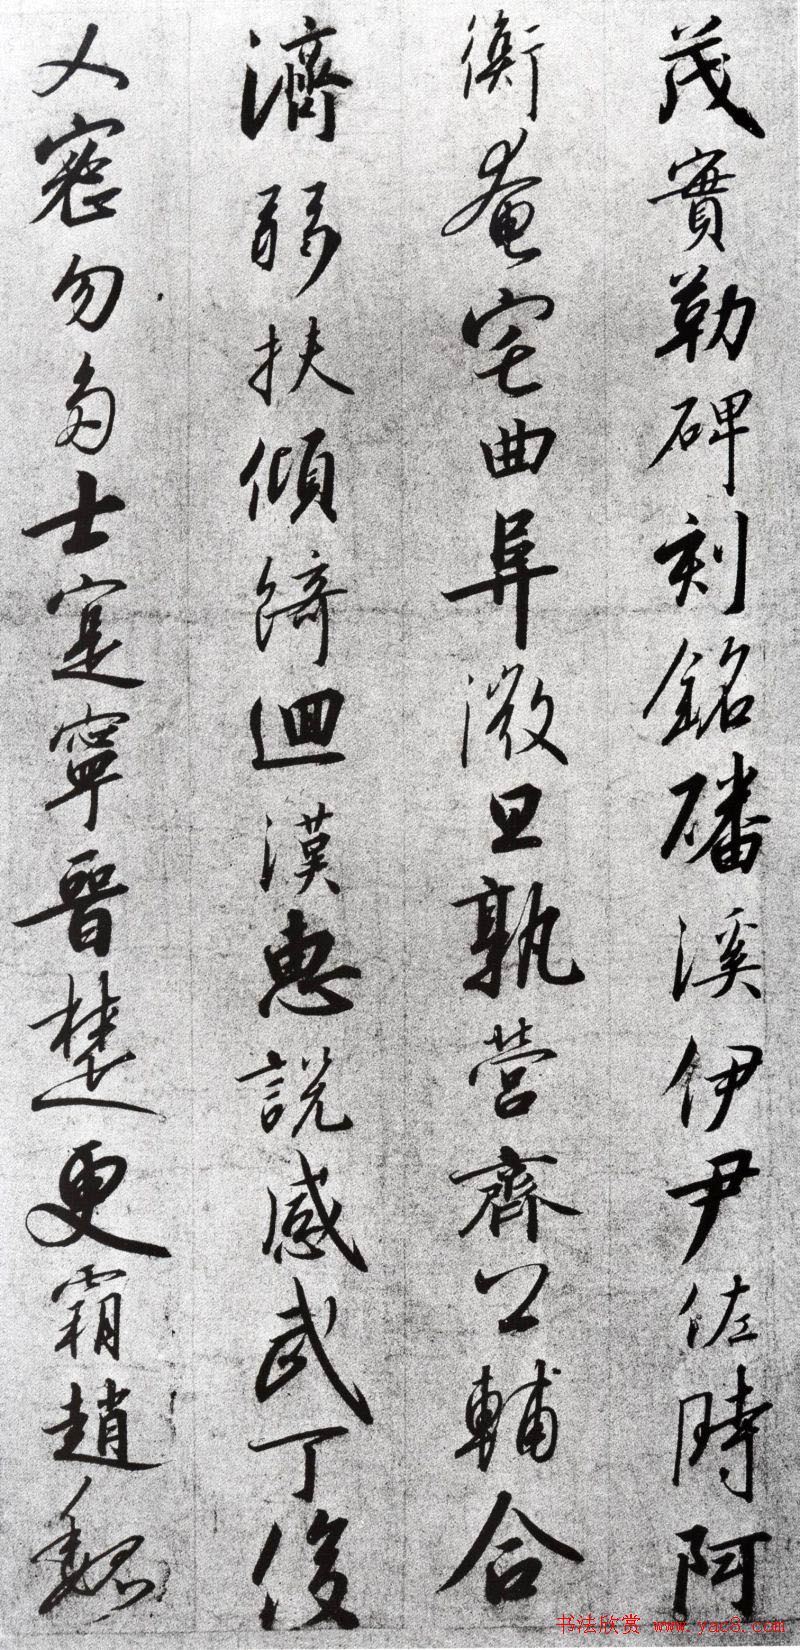 茂實勒碑刻銘磻溪伊尹佐時阿
衡奄宅曲阜微旦孰營齊公輔合
濟弱扶傾綺迴漢惠說感武丁俊
乂密勿多士寔寧晉楚更霸趙魏
书法欣赏 www.yac8.com